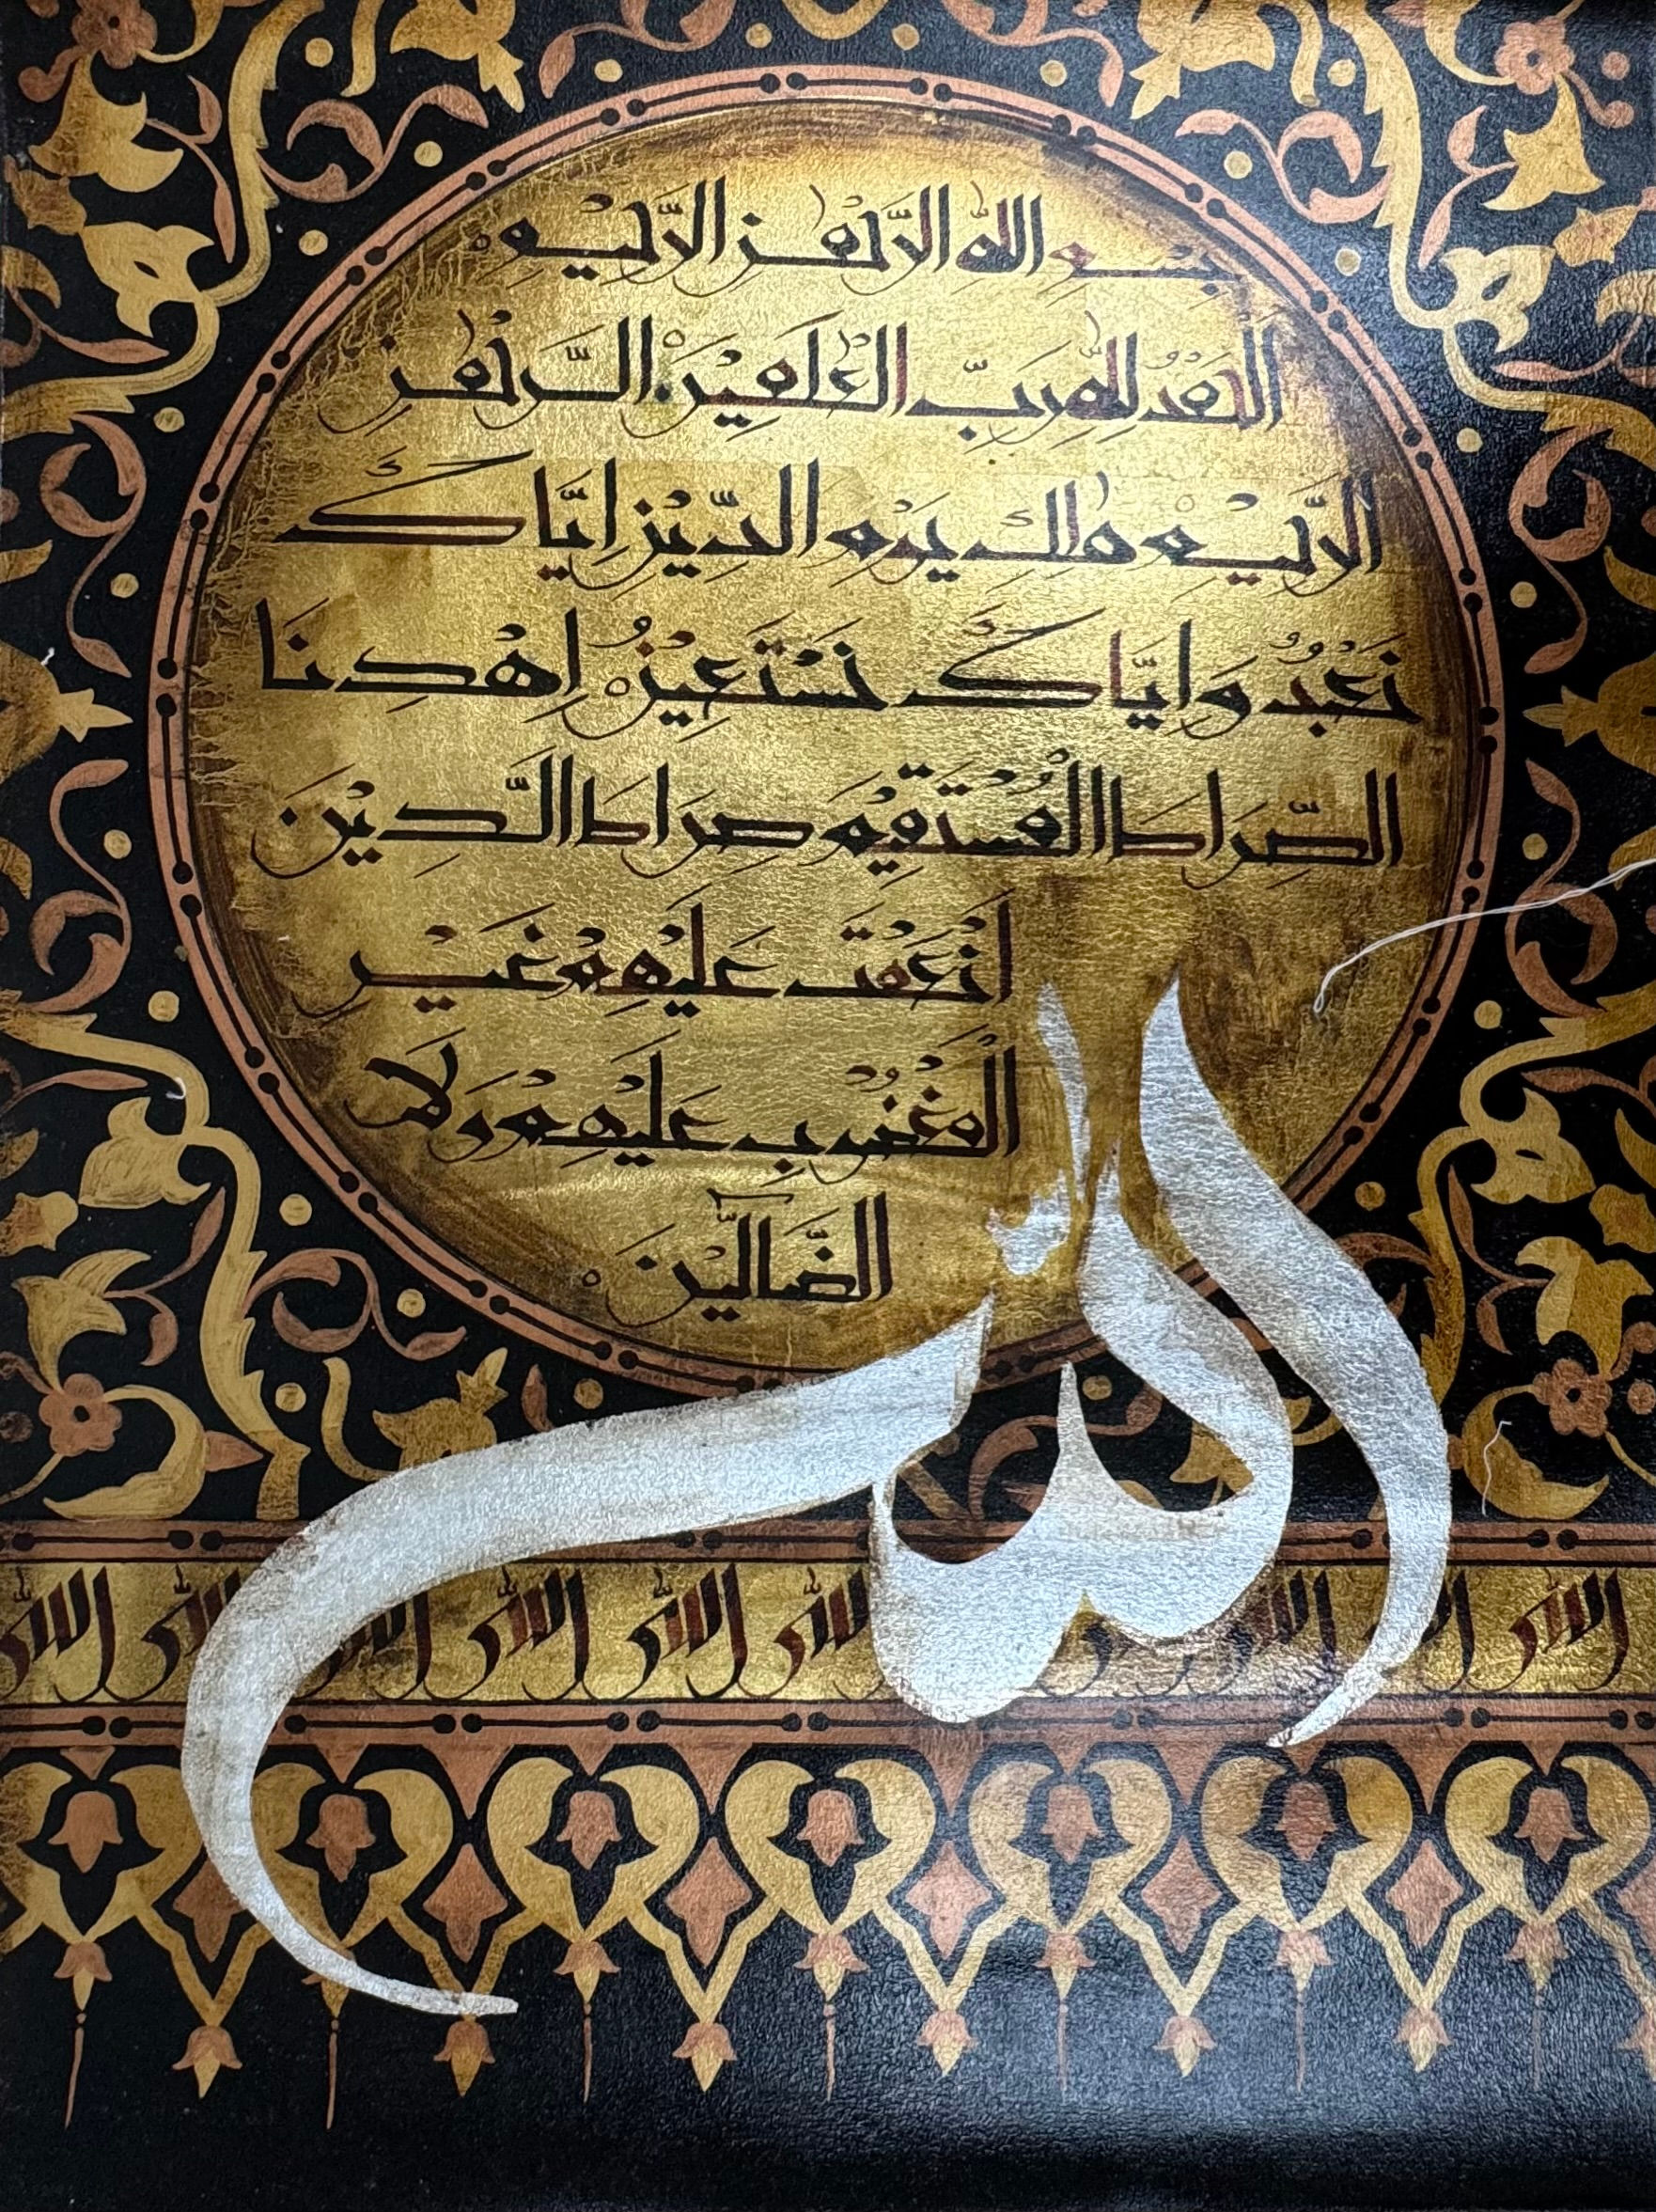 بسم الله الرَّحْمٰن الرَّحِيْم
اَلْحَمْدُ لِلّٰهِ رَبِّ الْعٰلَمِيْنَ الرَّحْمٰن
الرَّحِيْم مٰلِك يَوْم الدِّيْن اِيَّاكَ
نَعْبُدُ وَاِيَّاكَ نَسْتَعِيْنُ اِهْدِنَا
الصِّرَاطَ الْمُسْتَقِيْمَ صِرَاطَ الَّدِيْنَ
اَنْعَمْتَ عَلَيْهِمْ غَيْرِ
الْمَغْضُوْبِ عَلَيْهِمْ وَلَا
الضَّآلِّيْنَ
الله
الله الله الله الله الله الله الله الله الله الله